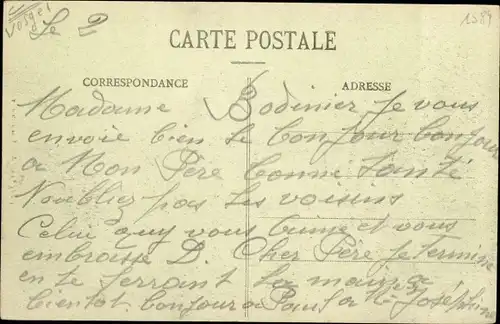 Vosges
Le 2
1589
CARTE POSTALE
CORRESPONDANCE
ADRESSE
Madame Bodinier Je vous
envoie bien le bonjour bonjour
a Mon Père bonne santé
Noubliez pas les voisins
Celui quy vous aime et vous
embrasse D. Cher Père Je termine
en te serrant la main a
bientot bonjour a Paul a Joséphine